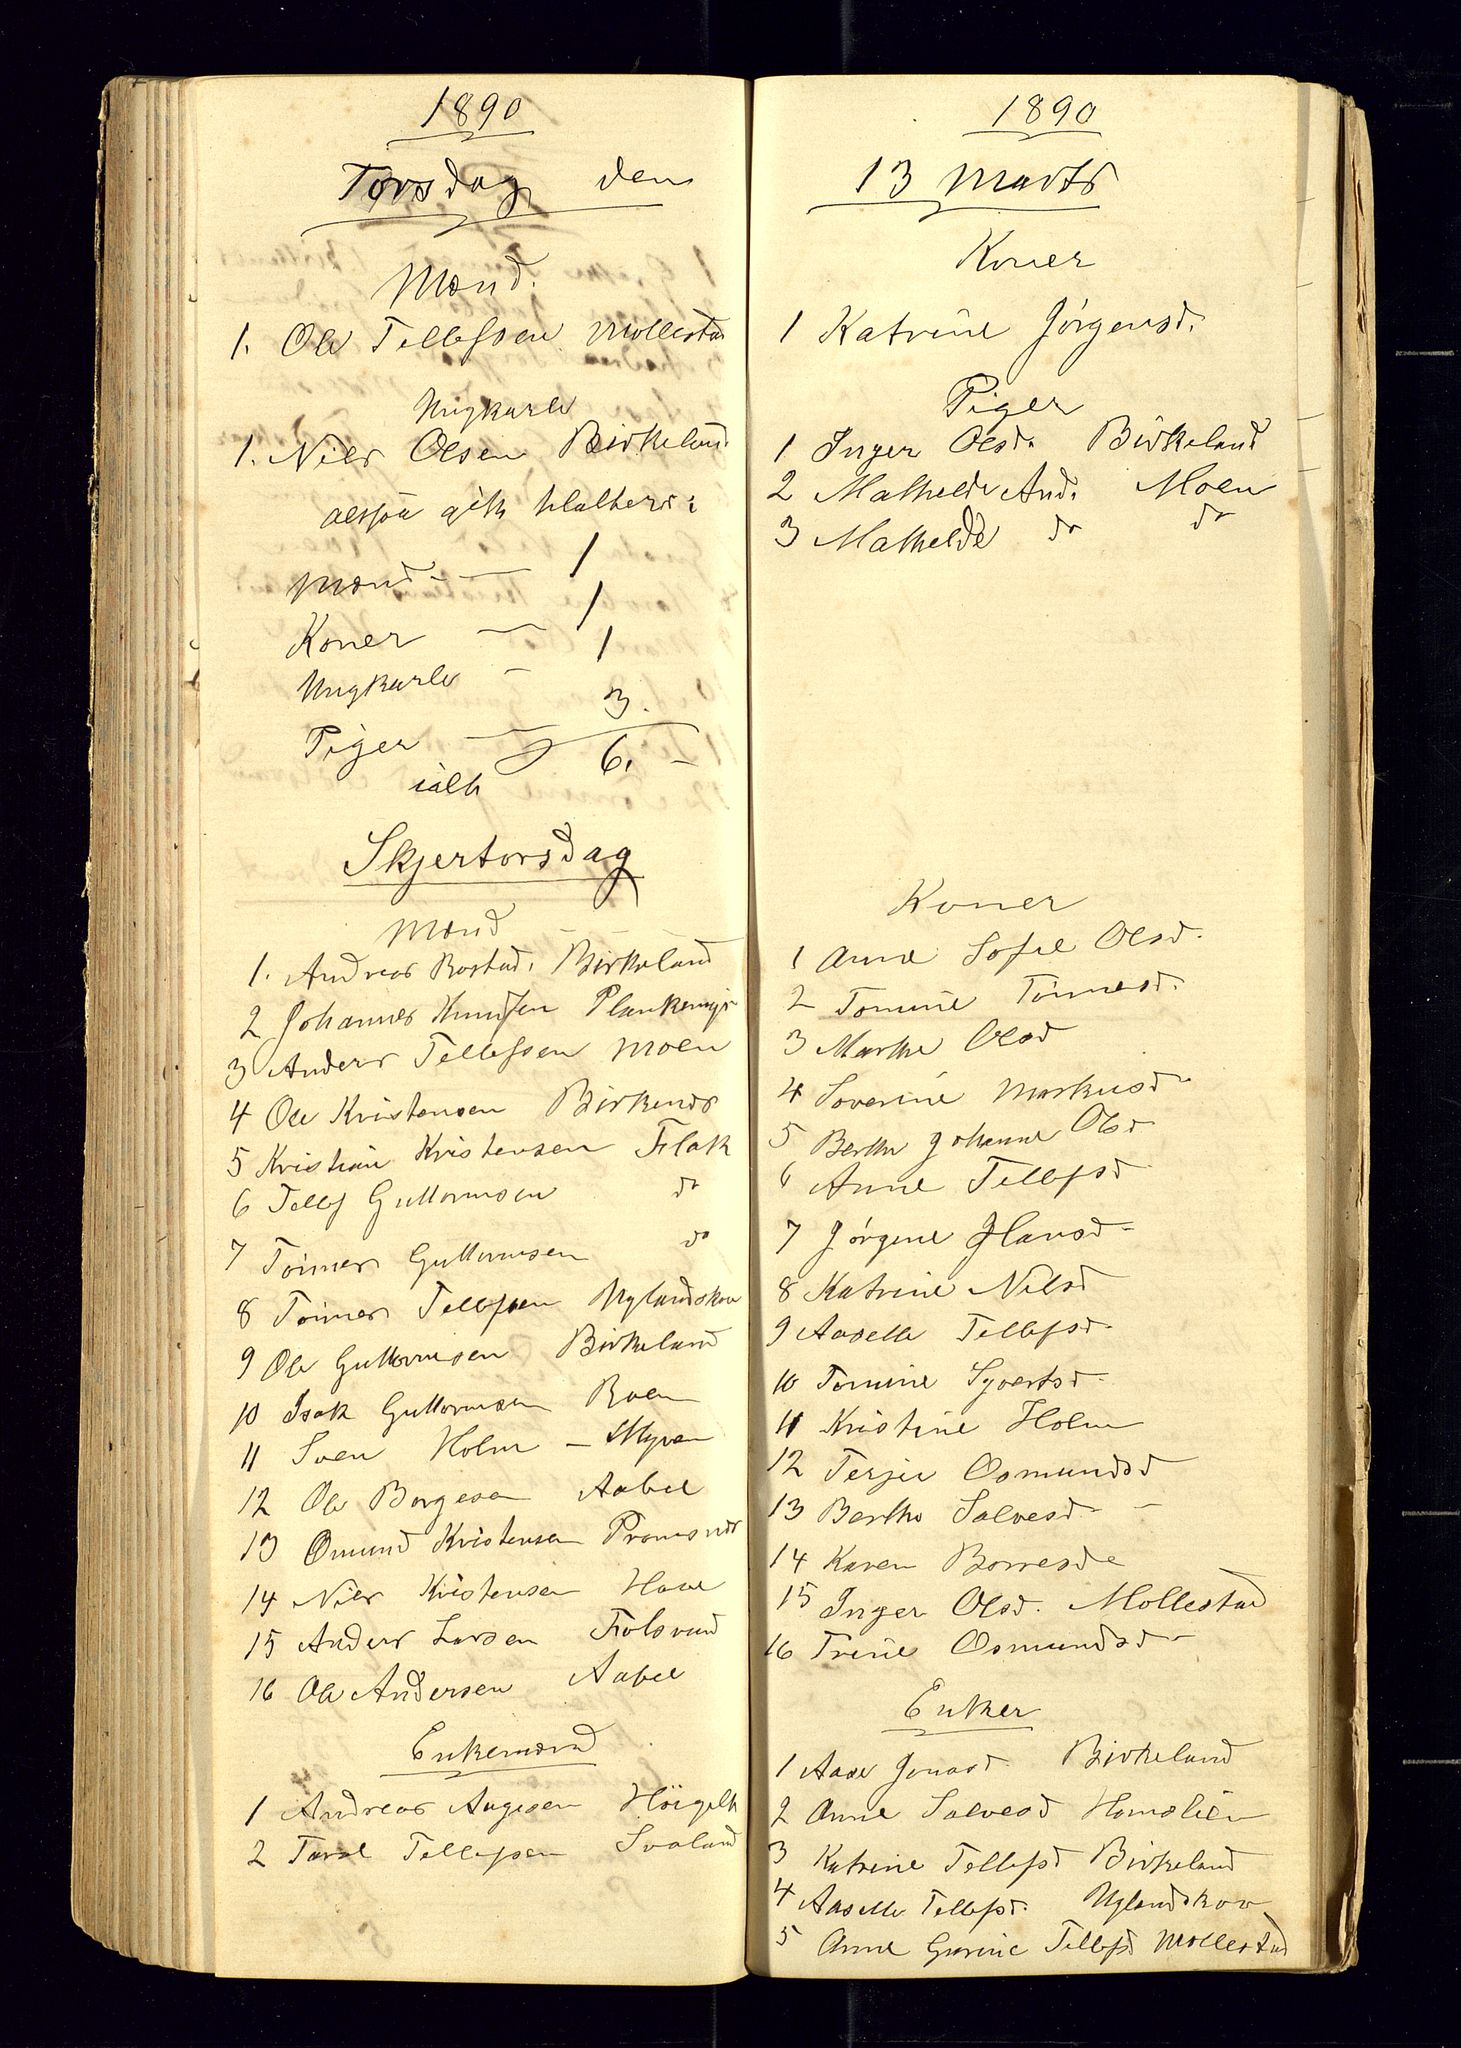 1890
Torsdag den
Mænd.
1. Ole Tellefsen Mollestad
Ungkarle
1. Niels Olsen Birkeland
altsaa gik tilalters:
Mænd — 1
Koner — 1
Ungkarle — 1
Piger — 3.
ialt 6. –
Skjertorsdag
Mænd
1. Andreas Rostad. Birkeland
2 Johannes Knudsen Plankemyr
3 Anders Tellefsen Moen
4 Ole Kristensen Birkenes
5 Kristian Kristensen Flak
6 Tellef Guttormsen do
7 Tönnes Guttormsen do
8 Tönnes Tellefsen Uglandskov
9 Ole Guttormsen Birkeland
10 Isak Guttormsen Roen
11 Sven Holm – Myren
12 Ole Borgesen Aabel
13 Omund Kristensen
14 Niels Kristensen Have
15 Anders Larsen Folsvand
16 Ole Andersen Aabel
Enkemænd
1 Andreas Aagesen
2 Tarel Tellefsen Svaland
1890
13 Marts
Koner
1 Katrine Jörgensd.
Piger
1 Inger Olsd. Birkeland
2 Mathilde And. Moen
3 Mathelde do do
Koner
1 Anne Sofie Olsd.
2 Tomine Tönnesd.
3 Marthe Olsd
4 Soverine Markusd
5 Berthe Johanne Olsd
6 Anne Tellefsd
7 Jørgene Hansd
8 Katrine Nilsd
9 Aaselle Tellefsd
10 Tomine Syvertsd
11 Kristine Holm
12 Terjer Osmundsd
13 Berthe Salvesd –
14 Karen Borresd
15 Inger Olsd. Mollestad
16 Trine Osmundsd
Enker
1 Aase Jonasd Birkeland
2 Anne Salvesd Hamslien
3 Katrine Tellefsd Birkeland
4 Aaselle Tellefsd. Uglandskov
5 Anne Gurine Tellefsd Mollestad